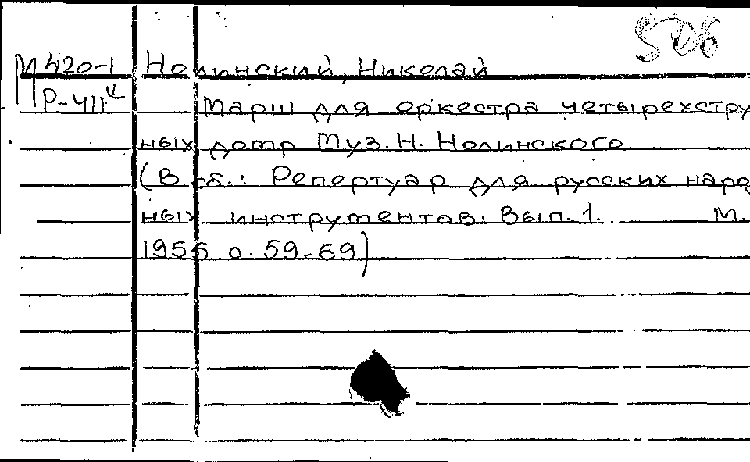 М 420-1 Нолинский, Николай
Р-411 Марш для оркестра четырехстру
ных домр Муз. Н. Нолинского
(В сб.: Репертуар для русских наро
ных инструментов. Вып. 1. М.
1956 с. 59-69)